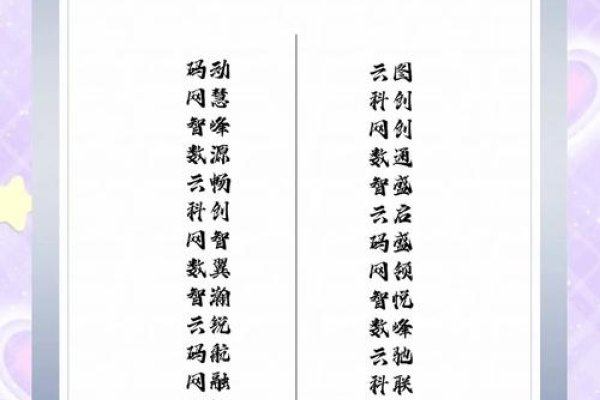 码动
网慧
智峰
数源
云畅
科创
网智
数翼
智瀚
云锐
码航
网融
云图
科创
网创
数通
智盛
云启
码盛
网领
智悦
数峰
云驰
科联